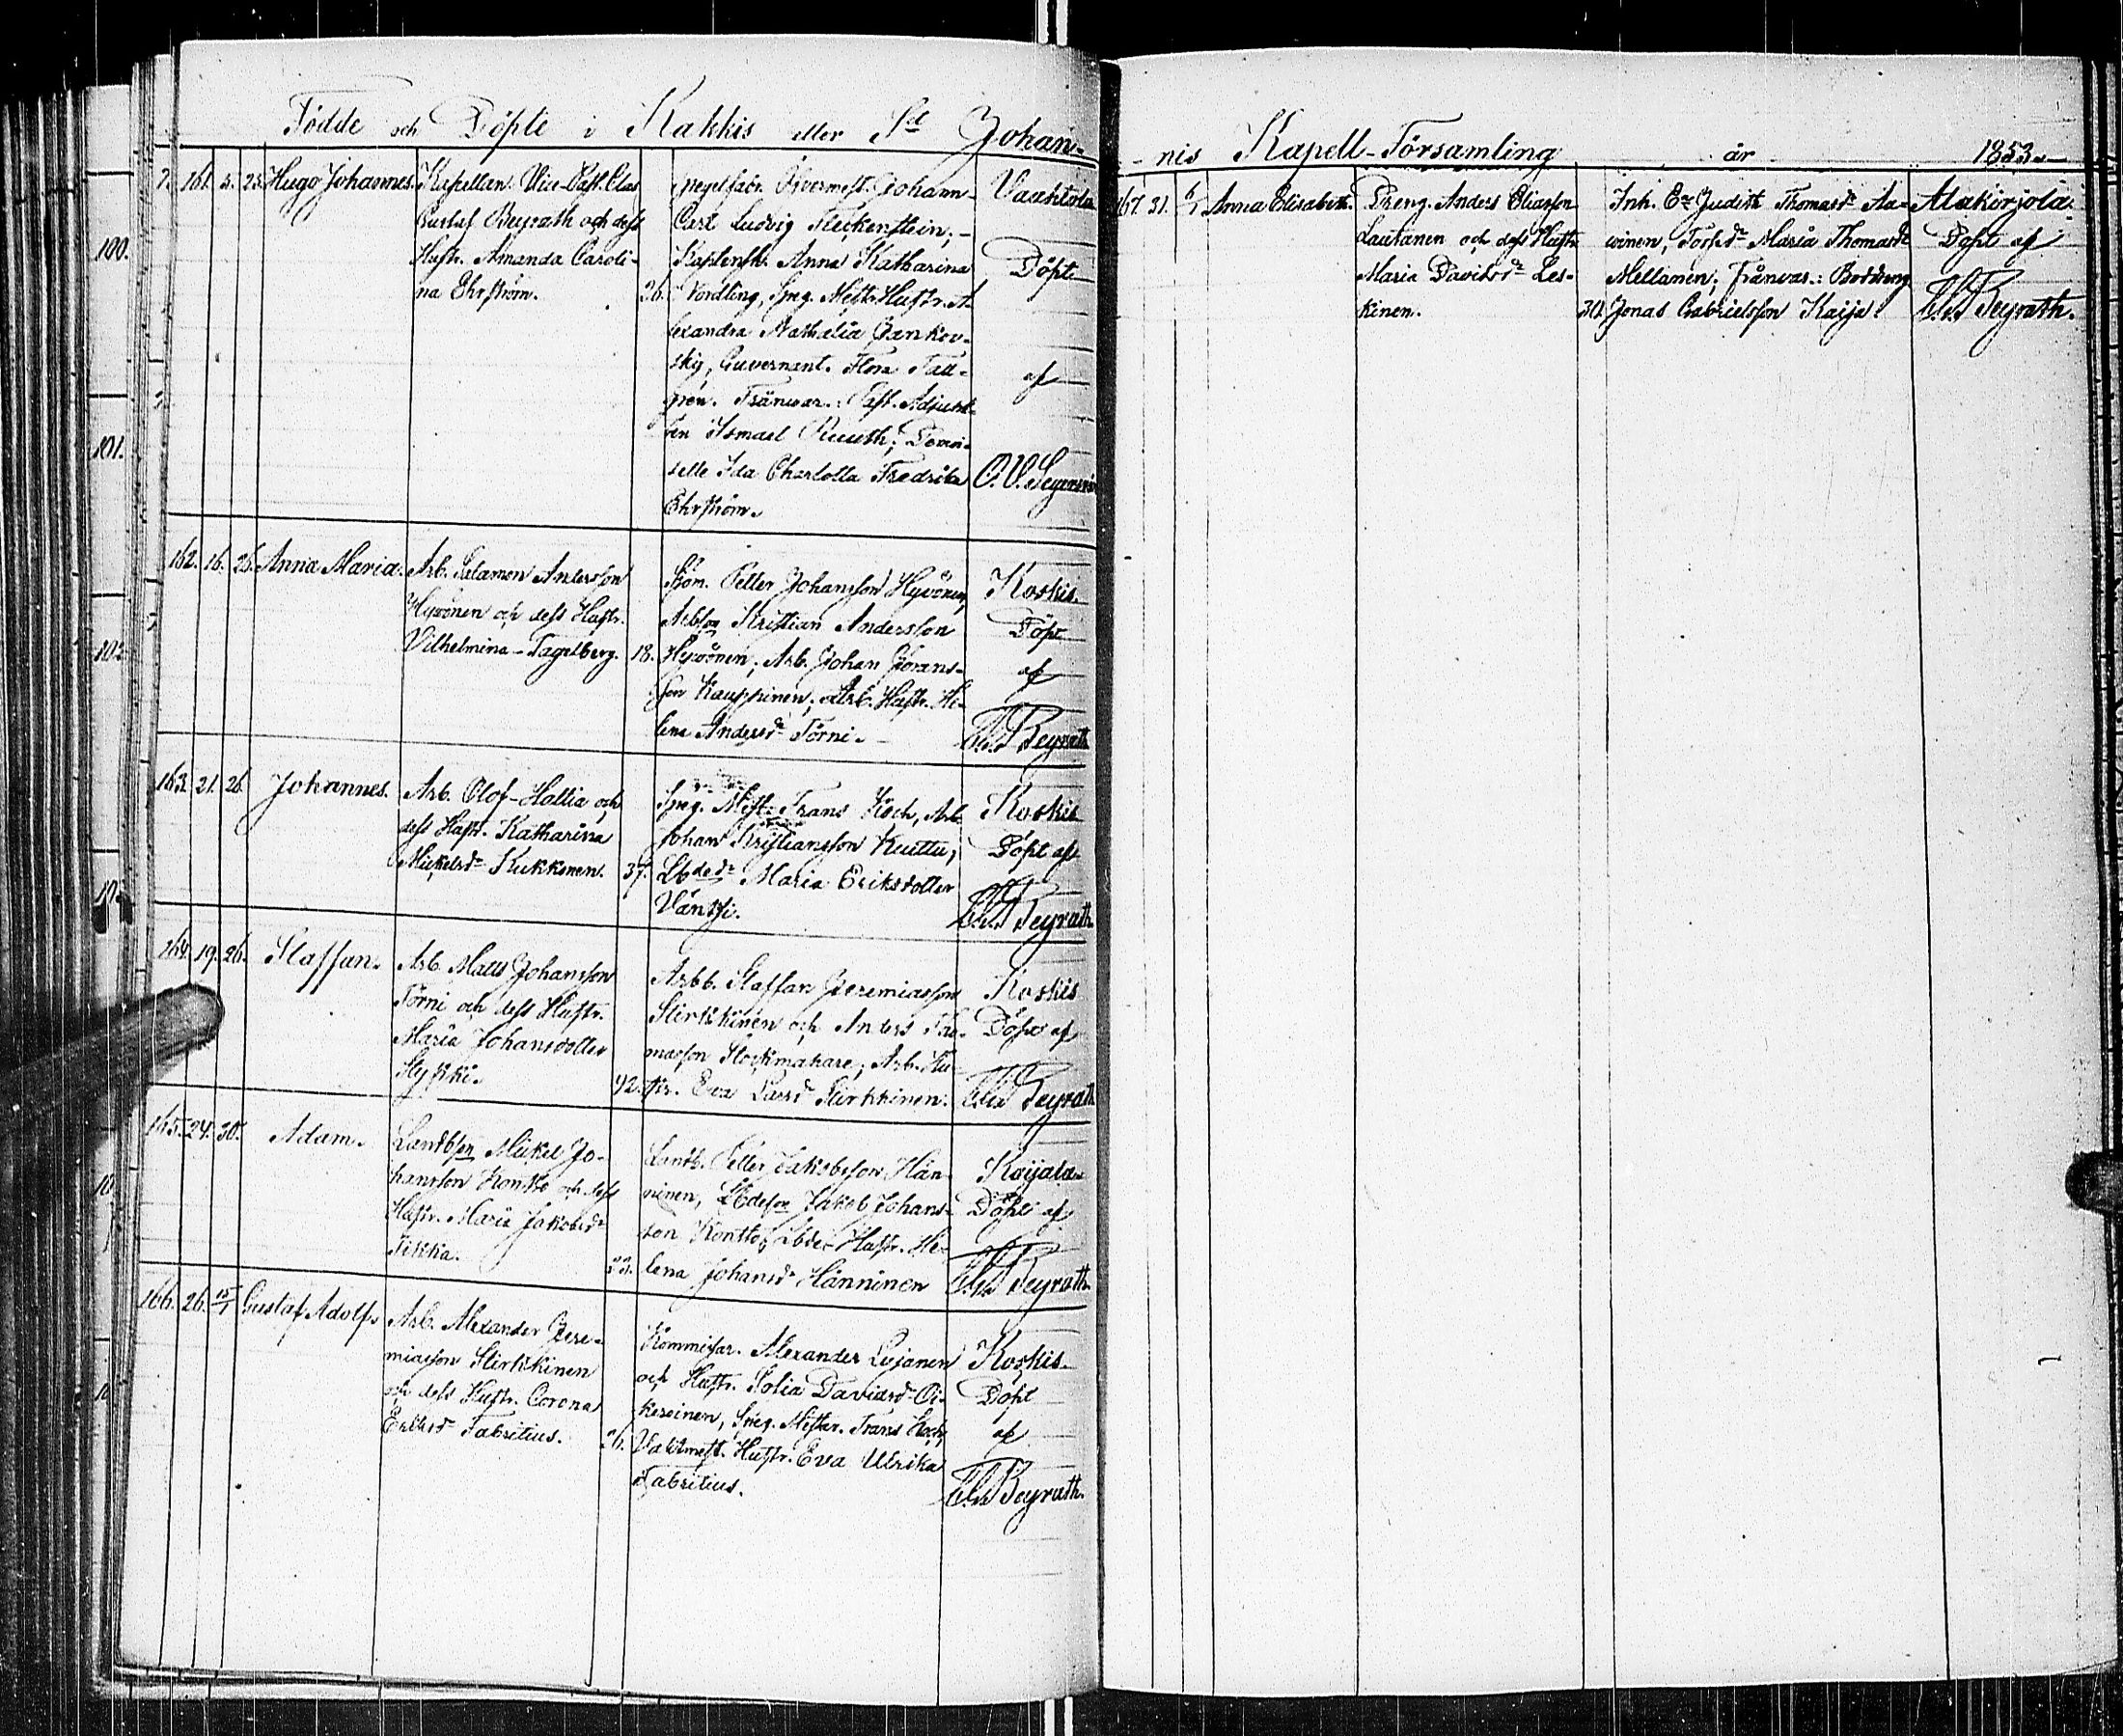 Födde och Döpte i Kakkis eller S:t Johan-
7. 161. 5. 25. Hugo Johannes. Kapellan. Vice-Past. Clas
Gustaf Beyrath och dess
Hustr. Amanda Caroli-
na Ehrström. 26.
Spegelfabr. Öfvermest. Johann
Carl Ludvig Fleckenstein;
Kaplensk. Anna Katharina
Nordling, Speg. Mestr. Hustr. A-
lexandra Nathalia Jankov-
sky, Guvernant. Flora Tall-
gren. Frånvar.: Past. Adjunk-
ten Ismael Ruuth; Demoi-
selle Ida Charlotta Fredrika
Ehrström.
Vauktola
Döpt
af
162. 16. 26. Anna Maria. Arb. Salamon Andersson
Hyvönen och dess Hustr.
Vilhelmina Tagelberg. 18.
Petter Johansson Hyvönen,
Arbson Kristian Andersson
Hyvönen; Arb. Johan Jörans-
son Kauppinen; Arb. Hustr. He-
lena Andersd:r Törni.
Koskis.
Döpt
af
C.G. Beyrath
163. 21. 26. Johannes. Arb. Olof Hallia och
dess Hustr. Katharina
Mickelsd:r Kukkonen. 37.
Speg. Mest. Frans Koch, Arb.
Johan Kristiansson Kuttu;
Lbded:r Maria Eriksdotter
Vänskä.
Koskis
Döpt af
C.G. Beyrath.
164. 19. 26. Staffan. Arb. Matts Johansson
Törni och dess Hustr.
Maria Johansdotter
42.
Arbb. Staffan Jeremiasson
Stirkkinen och Anders Tho-
masson Stockmakare; Arb. Hu-
str. Eva Larsd:r Stirkkinen.
Koskis
Döpt af
C.G. Beyrath
165. 24. 30. Adam. Landbson Mickel Jo-
hansson Kontto och dess
Hustr. Maria Jakobsd:r
Tikka. 23.
Landb. Petter Jakobsson Hän-
ninen, Lbdeson Jakob Johans-
son Kontto; Lbde Hustr. He-
lena Johansd:r Hänninen
Koijola
Döpt af
C.G. Beyrath.
166. 26. 15/1 Gustaf Adolf. Arb. Alexander Jere-
miasson Stirkkinen
och dess Hustr. Corona
Eriksd:r Fabritius. 26.
Kommissar. Alexander Loijanen
och Hustr. Sofia Davidsd:r Oi-
keroinen, Speg. Mester. Frans Koch,
Vaktmest. Hustr. Eva Ulrika
Fabritius.
Koskis
Döpt
af
C.G. Beyrath.
100.
101.
102.
-nis Kapell-Församling år 1853.
167. 31. 6/1 Anna Elisabeth. Dreng. Anders Eliasson
Lautanen och dess Hustr.
Maria Davidsd:r Les-
kinen. 30.
Inh. E:r Judith Thomasd:r Aa-
winen, Torpd:r Maria Thomasd:r
Mellanen; Frånvar.: Bonddreng
Jonas Gabrielsson Kaija.
Alakirjola.
Döpt af
C.G. Beyrath.